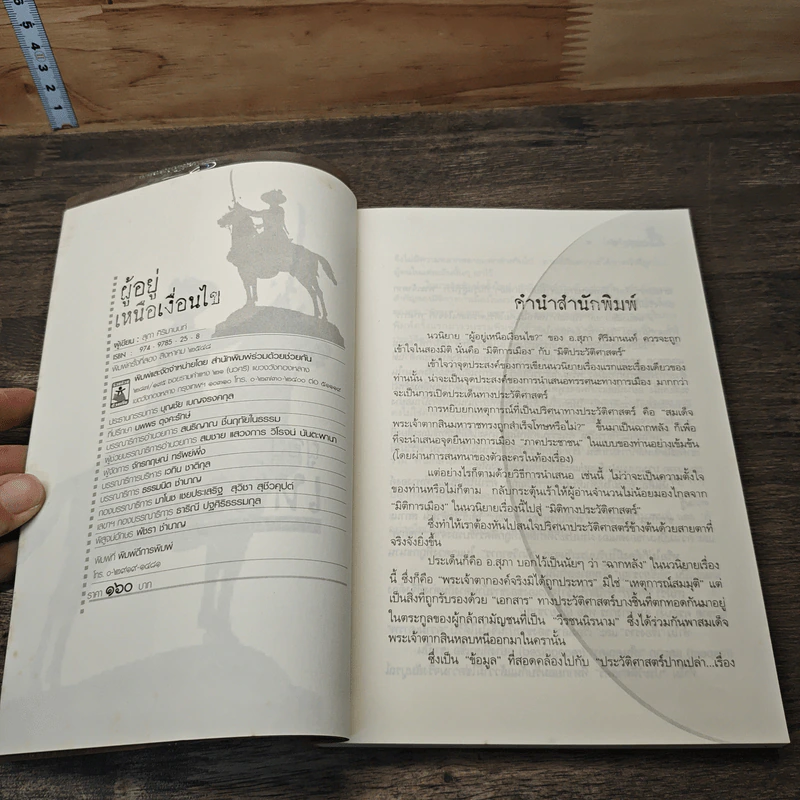 6
5
4
3
2
1
ผู้อยู่
เหนือเงื่อนไข
ผู้เขียน : สุภา ศิริมานนท์
ISBN : 974 - 9785 - 25 - 8
พิมพ์ครั้งที่สอง สิงหาคม ๒๕๔๔
พิมพ์และจัดจำหน่ายโดย สำนักพิมพ์ร่วมด้วยช่วยกัน
แขวงวังทองหลาง
เขตวังทองหลาง กรุงเทพฯ
ประธานกรรมการ บุญชัย เบญจรงคกุล
ที่ปรึกษา นพพร ตุงคะรักษ์
บรรณาธิการอำนวยการ สนธิญาณ ชื่นฤทัยในธรรม
ผู้ช่วยบรรณาธิการอำนวยการ สมชาย แสวงการ วิโรจน์ นันตะพานา
ผู้จัดการ จักรกฤษณ์ ทรัพย์พึ่ง
บรรณาธิการบริหาร เวทิน ชาติกุล
บรรณาธิการ ธรรมนิต ชำนาญ
กองบรรณาธิการ มาโนช แซยประเสริฐ สุวิชา สุชีวคุปต์
เลขาฯ กองบรรณาธิการ ธาริณี ปฐศิริธรรมกุล
พิสูจน์อักษร พัชรา ชำนาญ
พิมพ์ที่ พิมพ์ดีการพิมพ์
โทร. ๐-๒๙๑๙-๑๔๘๑
ราคา ๑๖๐ บาท
คำนำสำนักพิมพ์
นวนิยาย "ผู้อยู่เหนือเงื่อนไข?" ของ อ.สุภา ศิริมานนท์ ควรจะถูก
เข้าใจในสองมิติ นั่นคือ "มิติการเมือง" กับ "มิติประวัติศาสตร์"
เข้าใจว่าจุดประสงค์ของการเขียนนวนิยายเรื่องแรกและเรื่องเดียวของ
ท่านนั้น น่าจะเป็นจุดประสงค์ของการนำเสนอทรรศนะทางการเมือง มากกว่า
จะเป็นการเปิดประเด็นทางประวัติศาสตร์
การหยิบยกเหตุการณ์ที่เป็นปริศนาทางประวัติศาสตร์ คือ "สมเด็จ
พระเจ้าตากสินมหาราชทรงถูกสำเร็จโทษหรือไม่?" ขึ้นมาเป็นฉากหลัง ก็เพื่อ
ที่จะนำเสนอจุดยืนทางการเมือง "ภาคประชาชน" ในแบบของท่านอย่างเข้มข้น
(โดยผ่านการสนทนาของตัวละครในท้องเรื่อง)
แต่อย่างไรก็ตามด้วยวิธีการนำเสนอ เช่นนี้ ไม่ว่าจะเป็นความตั้งใจ
ของท่านหรือไม่ก็ตาม กลับกระตุ้นเร้าให้ผู้อ่านจำนวนไม่น้อยมองไกลจาก
"มิติการเมือง" ในนวนิยายเรื่องนี้ไปสู่ "มิติทางประวัติศาสตร์"
ซึ่งทำให้เราต้องหันไปสนใจปริศนาประวัติศาสตร์ข้างต้นด้วยสายตาที่
จริงจังยิ่งขึ้น
ประเด็นก็คือ อ.สุภา บอกไว้เป็นนัยๆ ว่า "ฉากหลัง" ในนวนิยายเรื่อง
นี้ ซึ่งก็คือ "พระเจ้าตากองค์จริงมิได้ถูกประหาร" มิใช่ "เหตุการณ์สมมุติ" แต่
เป็นสิ่งที่ถูกรับรองด้วย "เอกสาร" ทางประวัติศาสตร์บางชิ้นที่ตกทอดกันมาอยู่
ในตระกูลของผู้กล้าสามัญชนที่เป็น "วีรชนนิรนาม" ซึ่งได้ร่วมกันพาสมเด็จ
พระเจ้าตากสินหลบหนีออกมาในครานั้น
ซึ่งเป็น "ข้อมูล" ที่สอดคล้องไปกับ "ประวัติศาสตร์ปากเปล่า...เรื่อง